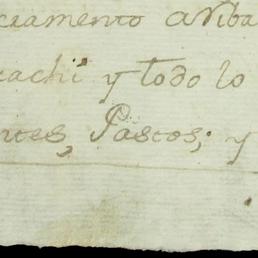 cramento arriba
cachi y todo lo
ntes, Pastos; y